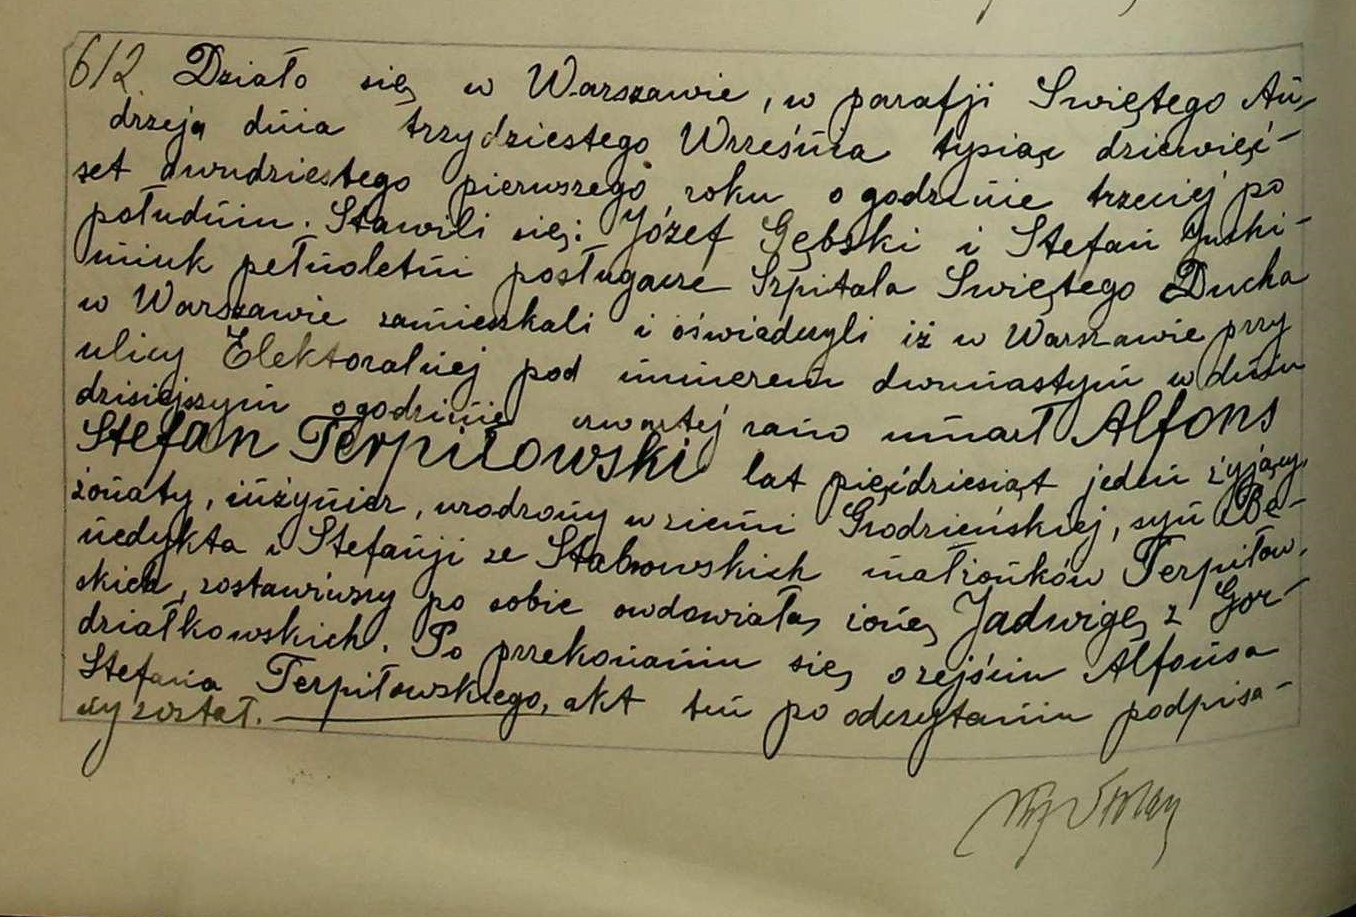 612. Działo się w Warszawie, w parafji Swiętego An-
drzeja dnia trzydziestego Września tysiąc dziewięć-
set dwudziestego pierwszego roku o godzinie trzeciej po
południu. Stawili się: Józef Gębski i Stefan Juchi-
miuk pełnoletni posługacze Szpitala Swiętego Ducha
w Warszawie zamieszkali i oświadczyli iż w Warszawie przy
ulicy Elektoralnej pod numerem dwunastym w dniu
dzisiejszym o godzinie czwartej rano umarł Alfons
Stefan Terpiłowski lat pięćdziesiąt jeden żyjący,
żonaty, inżynier, urodzony w ziemi Grodzieńskiej, syn Be-
nedykta i Stefanji ze Stabrowskich małżonków Terpiłow-
skich, zostawiwszy po sobie owdowiałą żonę Jadwigę z Gor-
działkowskich. Po przekonaniu się o zejściu Alfonsa
Stefana Terpiłowskiego, akt ten po odczytaniu podpisa-
ny został.